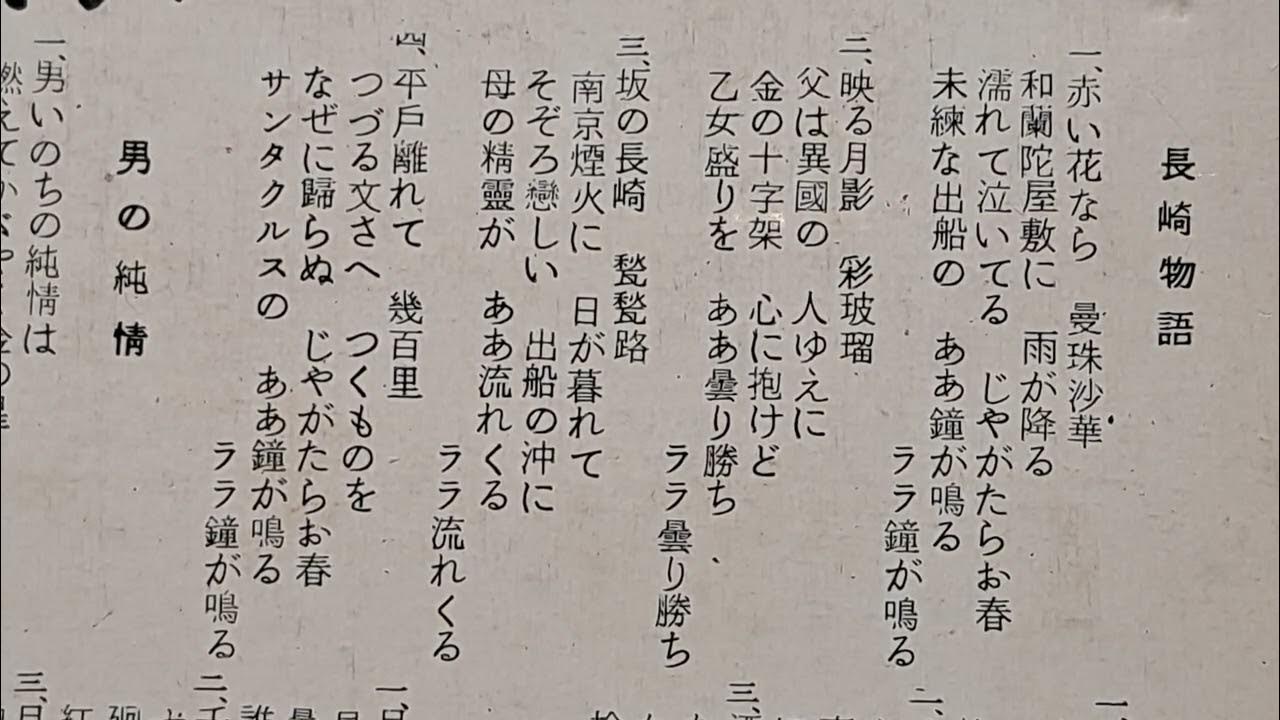 長崎物語
一、赤い花なら 曼珠沙華
和蘭陀屋敷に 雨が降る
濡れて泣いてる じやがたらお春
未練な出船の ああ鐘が鳴る
ララ鐘が鳴る
二、映る月影 彩玻瑠
父は異國の 人ゆえに
金の十字架 心に抱けど
乙女盛りを ああ曇り勝ち
ララ曇り勝ち
三、坂の長崎 甃甃路
南京煙火に 日が暮れて
そぞろ戀しい 出船の沖に
母の精靈が ああ流れくる
ララ流れくる
四、平戶離れて 幾百里
つづる文さへ つくものを
なぜに歸らぬ じやがたらお春
サンタクルスの ああ鐘が鳴る
ララ鐘が鳴る
男の純情
一、男いのちの純情は